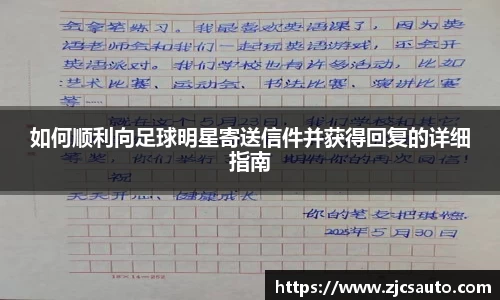 会拿笔练习。我最喜欢英语课了，因为英
语老师会和我们一起玩英语游戏，还会开
英语派对。我们学校也有许多活动，比如
艺术比赛、运动会、书法比赛、演讲比赛
等等
就在这个5月23日，我们学校和其
如何顺利向足球明星寄送信件并获得回复的详细
指南
期待你的再次回信！
祝
天天开心、健康成长
你的笔友
2025年5月30日
https://www.zjcsauto.com